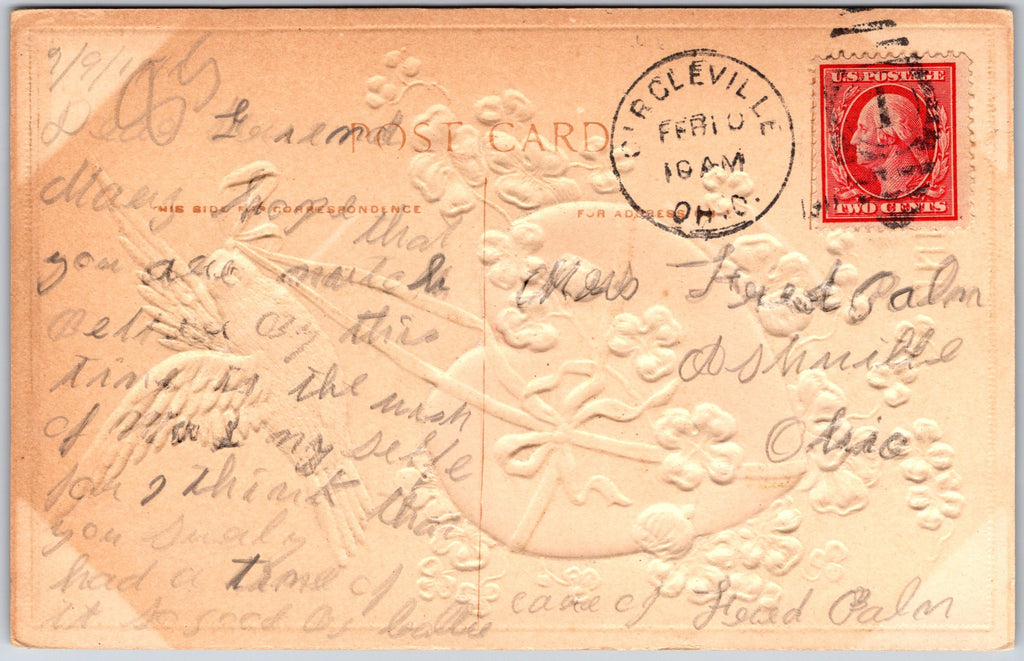 2/9/10
Dear Friend
POST CARD
CIRCLEVILLE
FEB 10
10 AM
OHIO.
U.S. POSTAGE
TWO CENTS
THIS SIDE FOR CORRESPONDENCE
FOR ADDRESS
Mary Hope that
you are mutch
Better by this
time is the wish
of my selfe
for I think that
you Surely
had a time of
it so good by Lottie
Mrs Fred Palm
Ashville
Ohio
care of Fred Palm